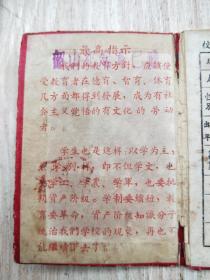 最高指示
我们的教育方针,应该使
受教育者在德育、智育、体育
几方面都得到发展,成为有社
会主义觉悟的有文化的劳动
者。
学生也是这样,以学为主,
兼学别样,即不但学文,也
要学工、学农、学军,也要批
判资产阶级。学制要缩短,教
育要革命,资产阶级知识分子
统治我们学校的现象,再也不
能继续下去了。